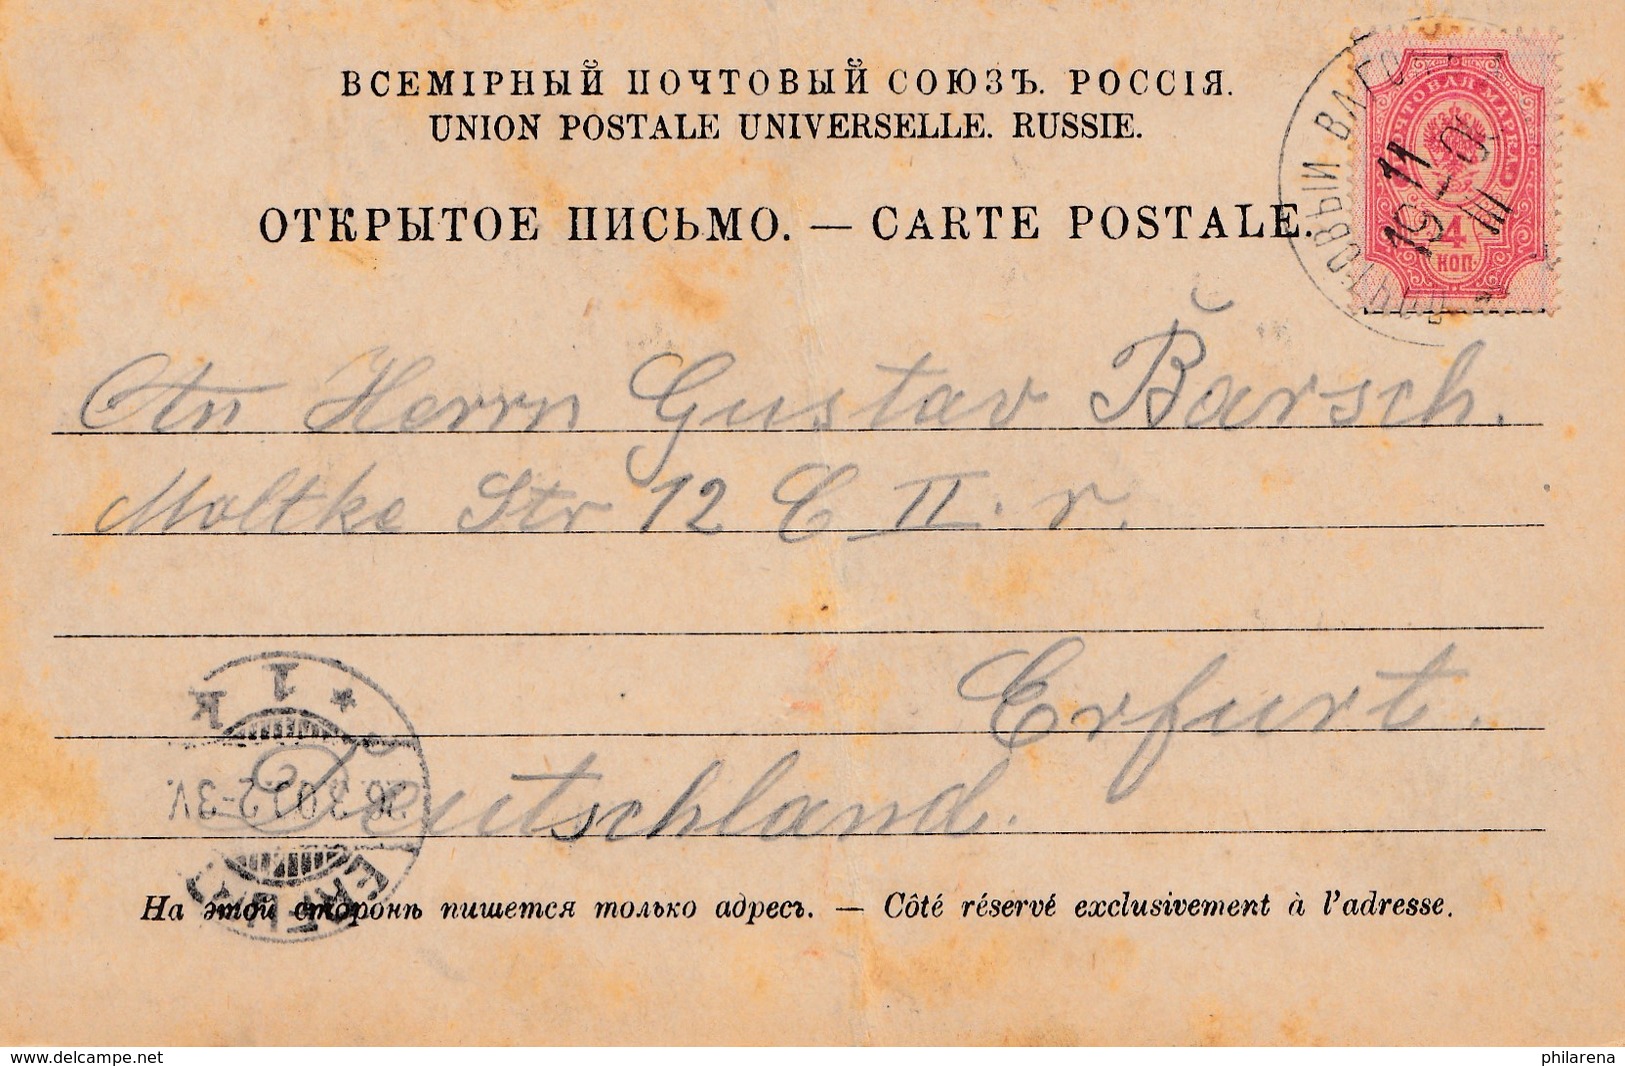 ВСЕМІРНЫЙ ПОЧТОВЫЙ СОЮЗЪ. РОССІЯ.
UNION POSTALE UNIVERSELLE. RUSSIE.
ОТКРЫТОЕ ПИСЬМО. — CARTE POSTALE.
ПОЧТОВАЯ МАРКА
4
КОП.
ПОЧТОВЫЙ ВАГО
11
III
An Herrn Gustav Barsch.
Moltke Str 12 C II. r.
Erfurt.
Deutschland.
ERFURT
* 1 k
2-3V.
На этой сторонѣ пишется только адресъ. — Côté réservé exclusivement à l'adresse.
www.delcampe.net
philarena